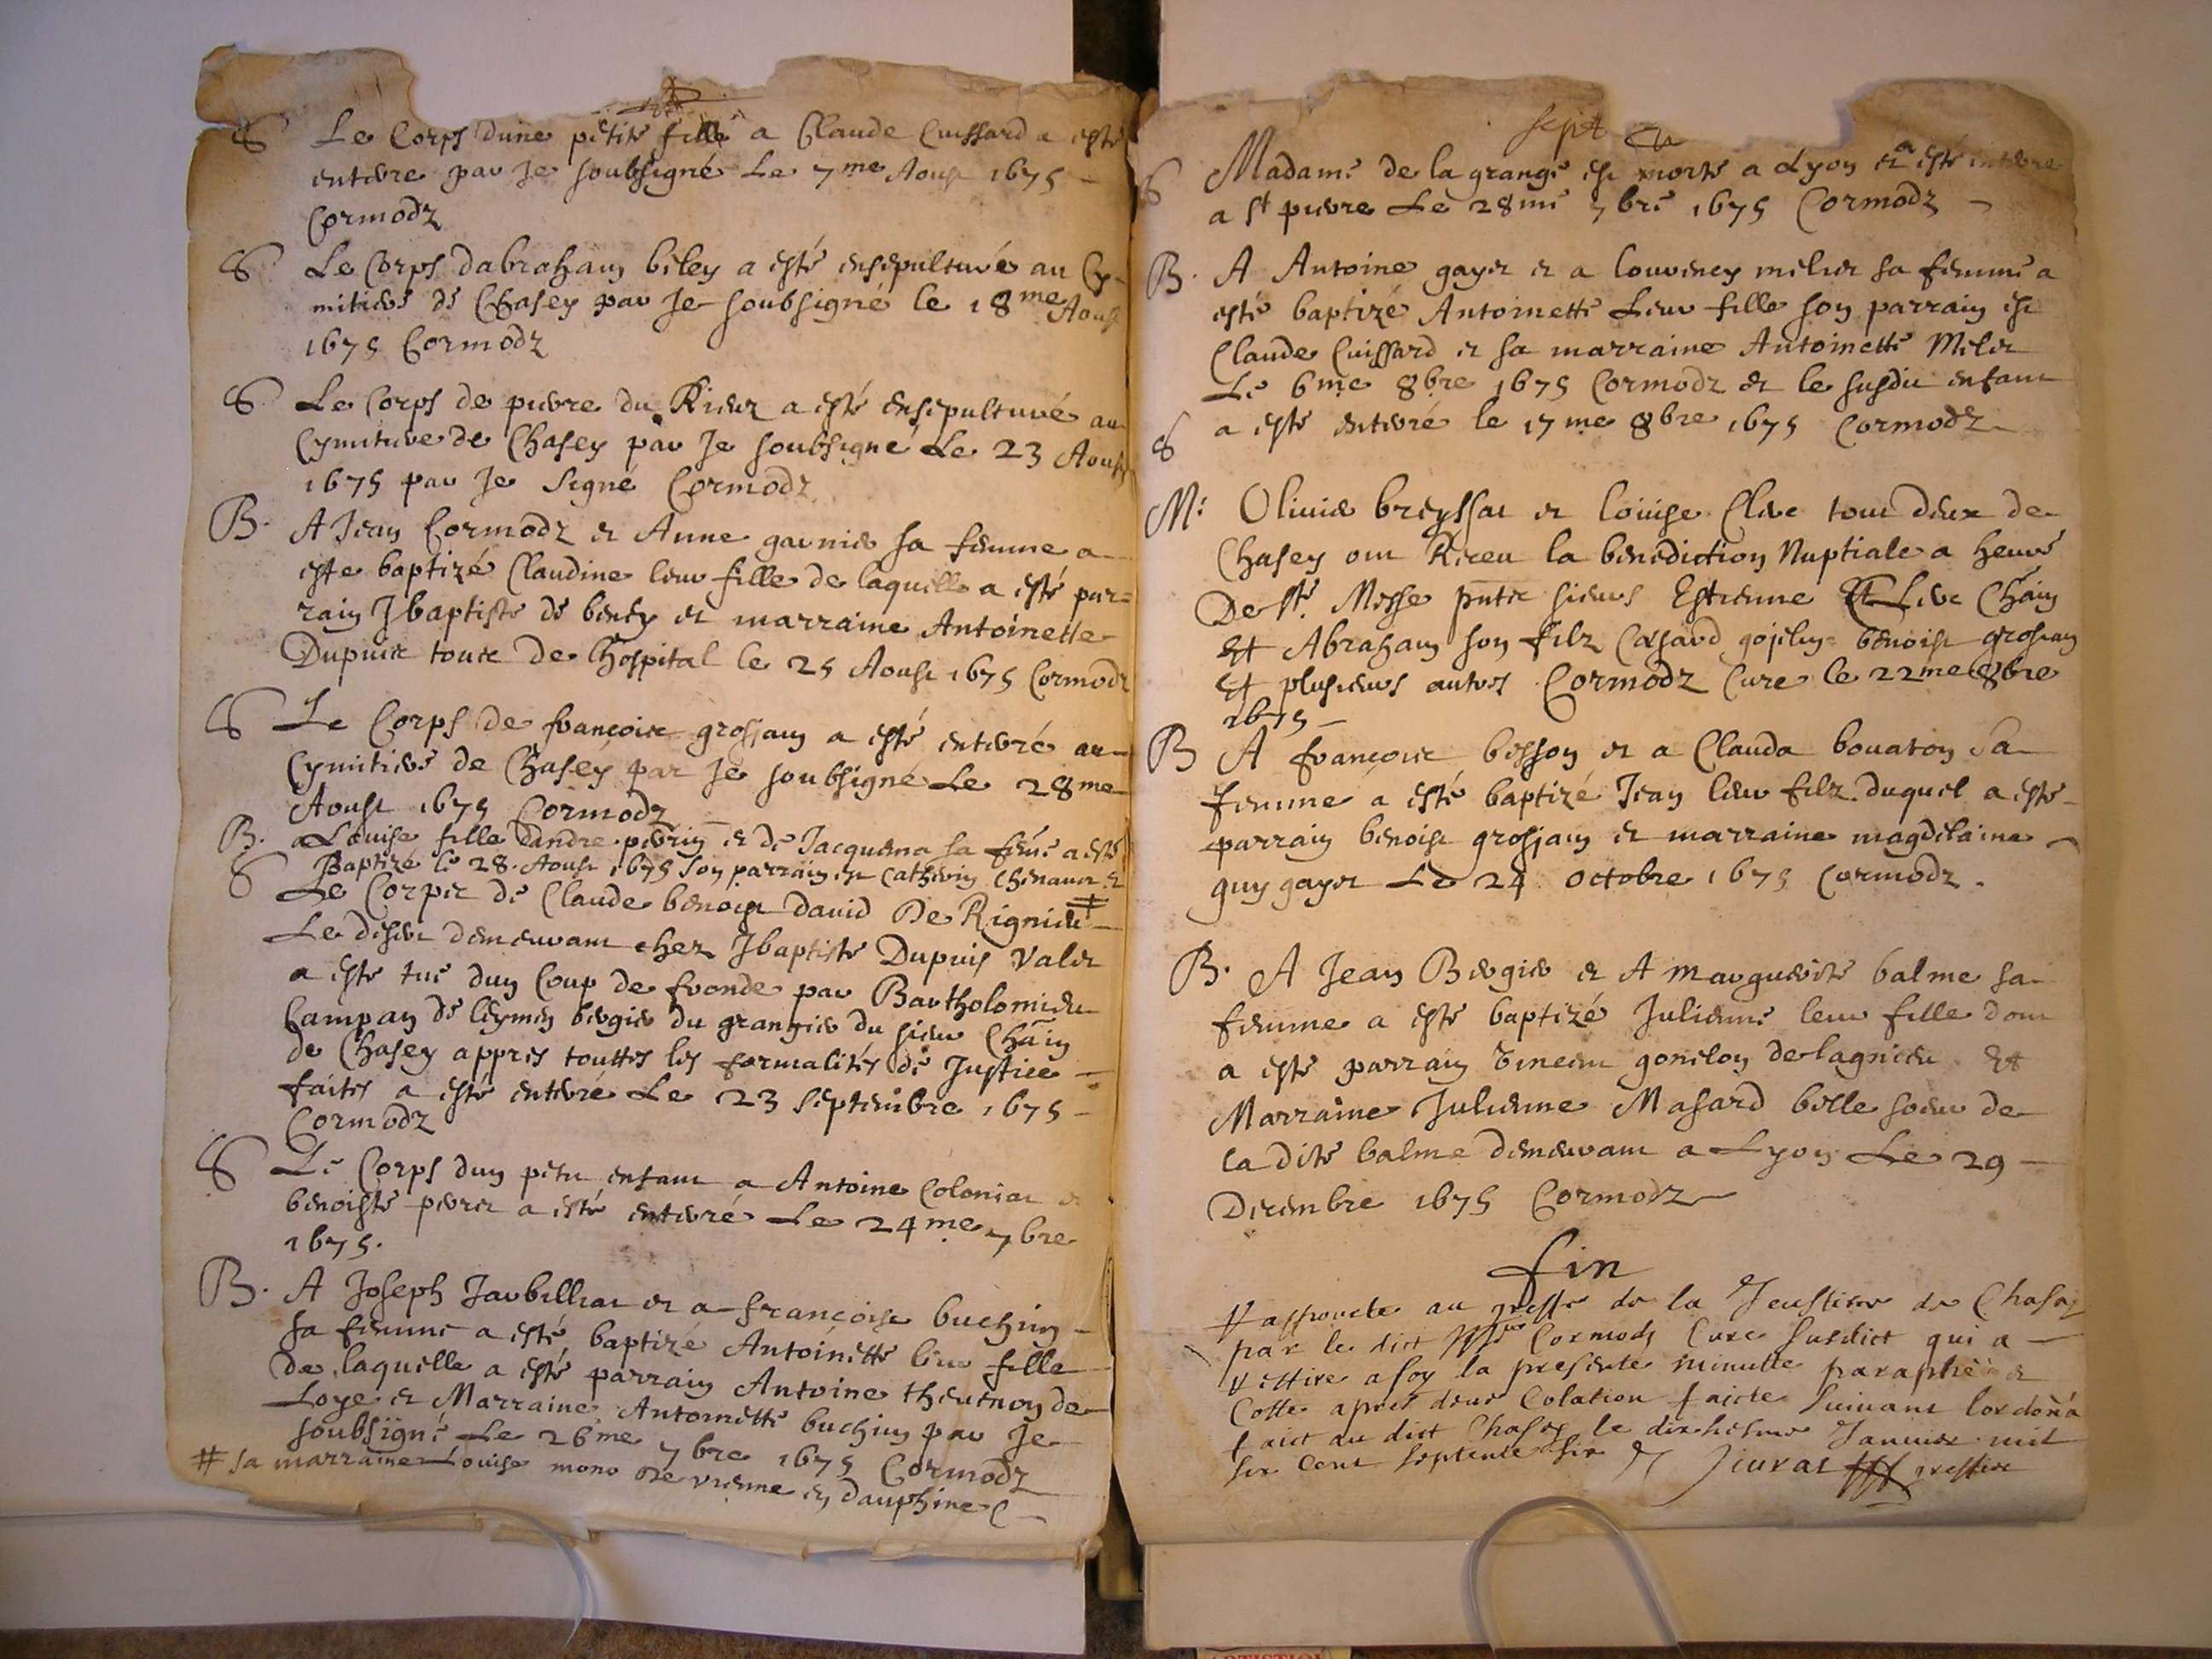 S Le Corps dune petite fille a Claude Cuissard a esté
enterre par Je soubsigné Le 7me Aoust 1675
Cormodz
S Le Corps dabraham biley a esté ensepulturé au Cy-
mitiere de Chasey par Je soubsigné le 18me Aoust
1675 Cormodz
S Le Corps de pierre du Rieux a esté ensepulturé au
Cymitiere de Chasey par Je soubsigné Le 23 Aoust
1675 par Je Signé Cormodz
B. A Jean Cormodz et Anne garnier sa femme a
este baptizé Claudine leur fille de laquelle a esté par=
rain Jbaptiste de and marraine Antoinette
Dupuis tous de lhospital le 25 Aoust 1675 Cormodz
S Le Corps de francois grosjam a esté enterré au
Cymitiere de Chasey par Je soubsigné Le 28me
Aoust 1675 Cormodz
B. a Louise fille dandre perrin et de Jacquema sa feme a esté
Baptizé le 28. Aoust 1675 son parrain est Catherin Chenavat et #
S Le Corps de Claude benoist david De Rignieu
Le desert demeurant chez Jbaptiste Dupuis Valet
a esté tué dun Coup de fronde par Bartholomieu
Campan de leymen bergier du grangier du sieur Chain
de Chasey appres touttes les formalités de Justice
faites a esté enterre Le 23 Septembre 1675
Cormodz
S Le Corps dun petit enfant a Antoine Coloniat et
benoiste perret a esté enterré Le 24me 7bre
1675.
B. A Joseph Jarbilliat et a francoise buchin
sa femme a esté baptizé Antoinette leur fille
de laquelle a esté parrain Antoine thevenon de
Loye et Marraine Antoinette buchin par Je
soubsigné Le 26me 7bre 1675 Cormodz
# sa marraine Louise de vienne en dauphine C
sept
S Madame de la grange est morte a Lyon et a esté enterre
a st pierre Le 28me 7bre 1675 Cormodz
B. A Antoine gayet et a louveney melier sa femme a
esté baptizé Antoinette Leur fille son parrain est
Claude Cuissard et sa marraine Antoinette Melet
Le 6me 8bre 1675 Cormodz et le susdit enfant
S a esté enterré le 17me 8bre 1675 Cormodz
M: Olivier breyssat et louise Clerc tout deux de
Chasey ont Receu la benediction Nuptiale a heure
De ste Messe pntz sieurs Estienne Chain
Et Abraham son filz benoist grosjam
Et plusieurs autres Cormodz Cure le 22me 8bre
1675
B A francois besson et a Clauda bouaton Sa
femme a esté baptizé Jean leur filz duquel a esté
parrain benoist grosjam et marraine magdelaine
guy gayet Le 24 octobre 1675 Cormodz.
B. A Jean Bergier et A marguerite balme sa
femme a esté baptizé Julienne leur fille dont
a esté parrain Vincent gonelon de lagnieu Et
Marraine Julienne Masard belle soeur de
la dite balme demeurant a Lyon Le 29
Decembre 1675 Cormodz
fin
au greffe de la Jeustice de Chasey
par le dict Mre Cormodz Cure susdict qui a
retire a soy la presente minutte paraphée et
Cotte apres deue Colation faicte suivant lordona
faict au dict Chasey le dixhiesme Janvier mil
six cent septente six greffier